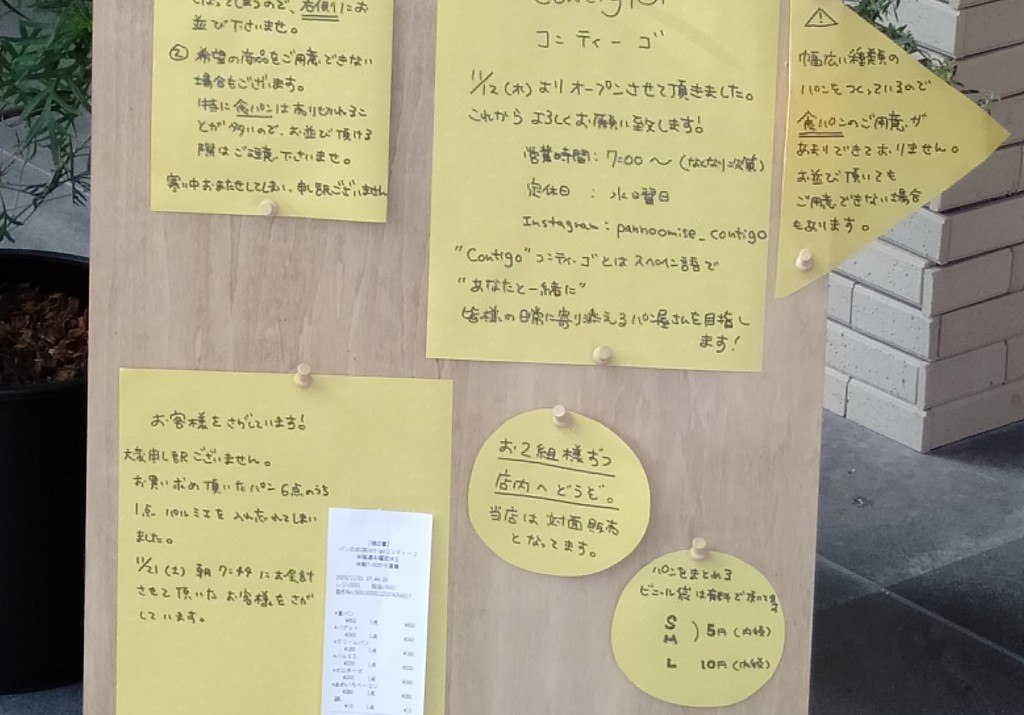 なってしまうので、右側にお
並び下さいませ。
② 希望の商品をご用意できない
場合もございます。
特に食パンは売り切れるこ
とが多いので、お並び頂ける
際はご注意下さいませ。
寒い中おまたせしてしまい、申し訳ございません
Contigo!
コンティーゴ
11/12(木)よりオープンさせて頂きました。
これから よろしくお願い致します!
営業時間:7:00〜(なくなり次第)
定休日 : 水曜日
Instagram: pannoomise_contigo
"Contigo"コンティーゴとはスペイン語で
"あなたと一緒に"
皆様の日常に寄り添えるパン屋さんを目指し
ます!
幅広い種類の
パンをつくっているので
食パンのご用意が
あまりできておりません。
お並び頂いても
ご用意できない場合
もあります。
お客様をさがしています!
大変申し訳ございません。
お買い求め頂いたパン6点のうち
1点 パルミエを入れ忘れてしまい
ました。
11/21(土)朝7:44にお会計
させて頂いたお客様をさが
しています。
お2組様ずつ
店内へどうぞ。
当店は対面販売
となってます。
パンをまとめる
ビニール袋は有料で頂いてます
S
M ) 5円(内税)
L 10円(内税)